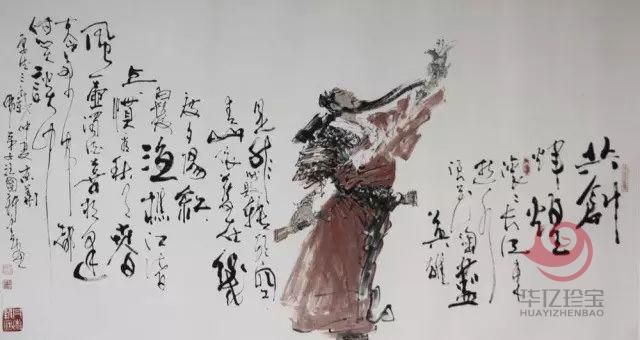 共創
辉煌
滚滚长江东
逝水
浪花淘盡
英雄
是非成败转头空
青山依舊在幾
度夕陽红
白髮
渔樵江渚
上惯看秋月春
風一壶浊酒喜相逢
古今多少事都
付笑談中
华亿珍宝
HUAYIZHENBAO